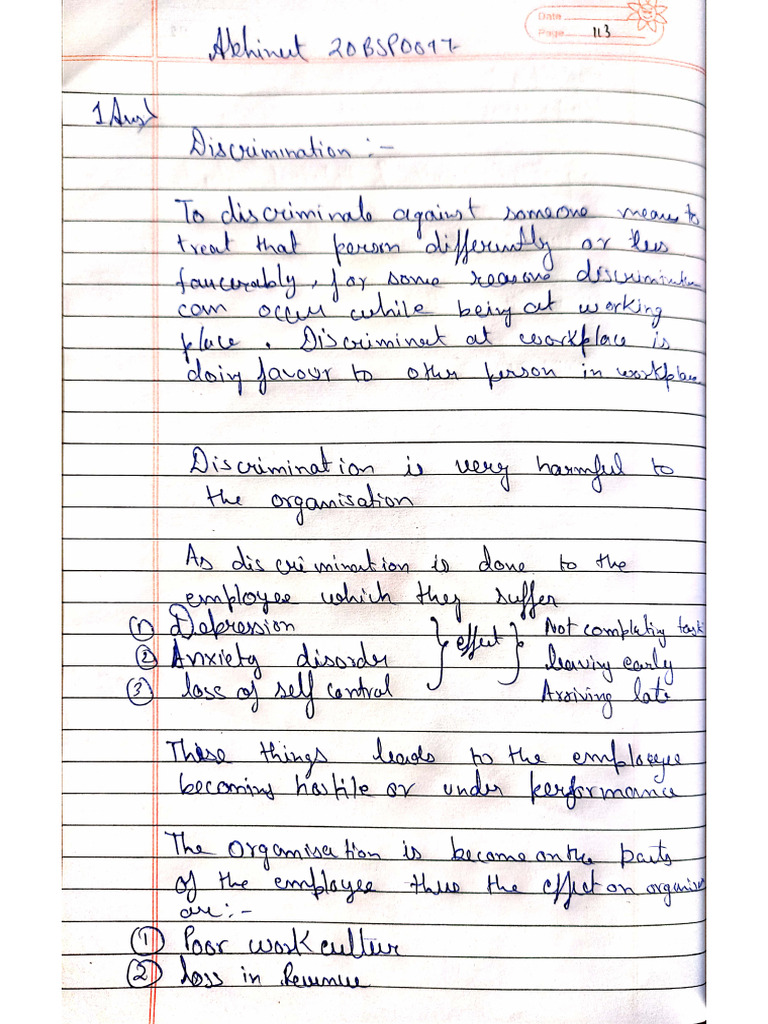 Date
Page 113
Abhineet 20BSP0017
1 Ans)
Discrimination :-
To discriminate against someone means to
treat that person differently or less
favourably, for some reasone discrimination
can occur while being at working
place. Discriminat at workplace is
doing favour to other person in workplace
Discrimination is very harmful to
the organisation
As discrimination is done to the
employee which they suffer
① Depression } effect } Not completing task
② Anxiety disorder leaving early
③ loss of self control Arriving late
These things leads to the employee
becoming hostile or under performance
The organisation is become on the parts
of the employee thus the effect on organisa
are:-
① Poor work cultur
② loss in Revenue